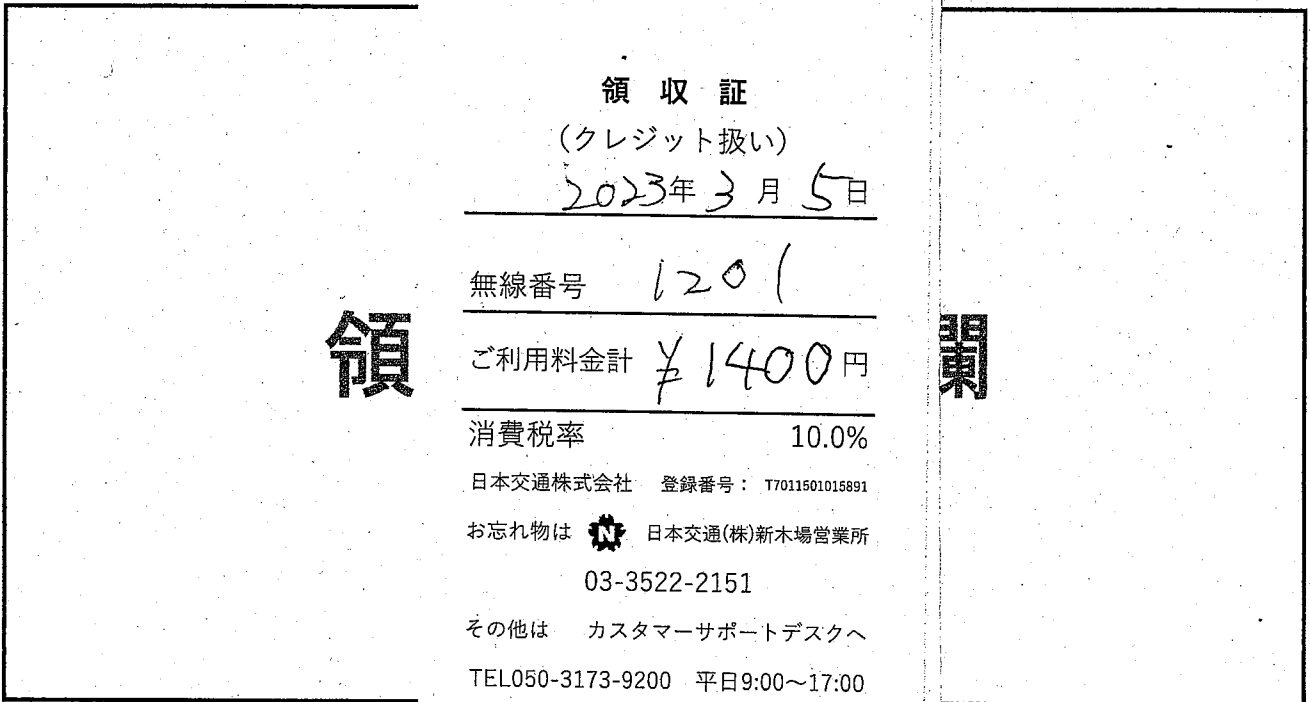 領収証
(クレジット扱い)
2023年3月5日
無線番号 1201
領
欄
ご利用料金計 ¥1400円
消費税率 10.0%
日本交通株式会社 登録番号: T7011501015891
お忘れ物は N 日本交通(株)新木場営業所
03-3522-2151
その他は カスタマーサポートデスクへ
TEL050-3173-9200 平日9:00~17:00